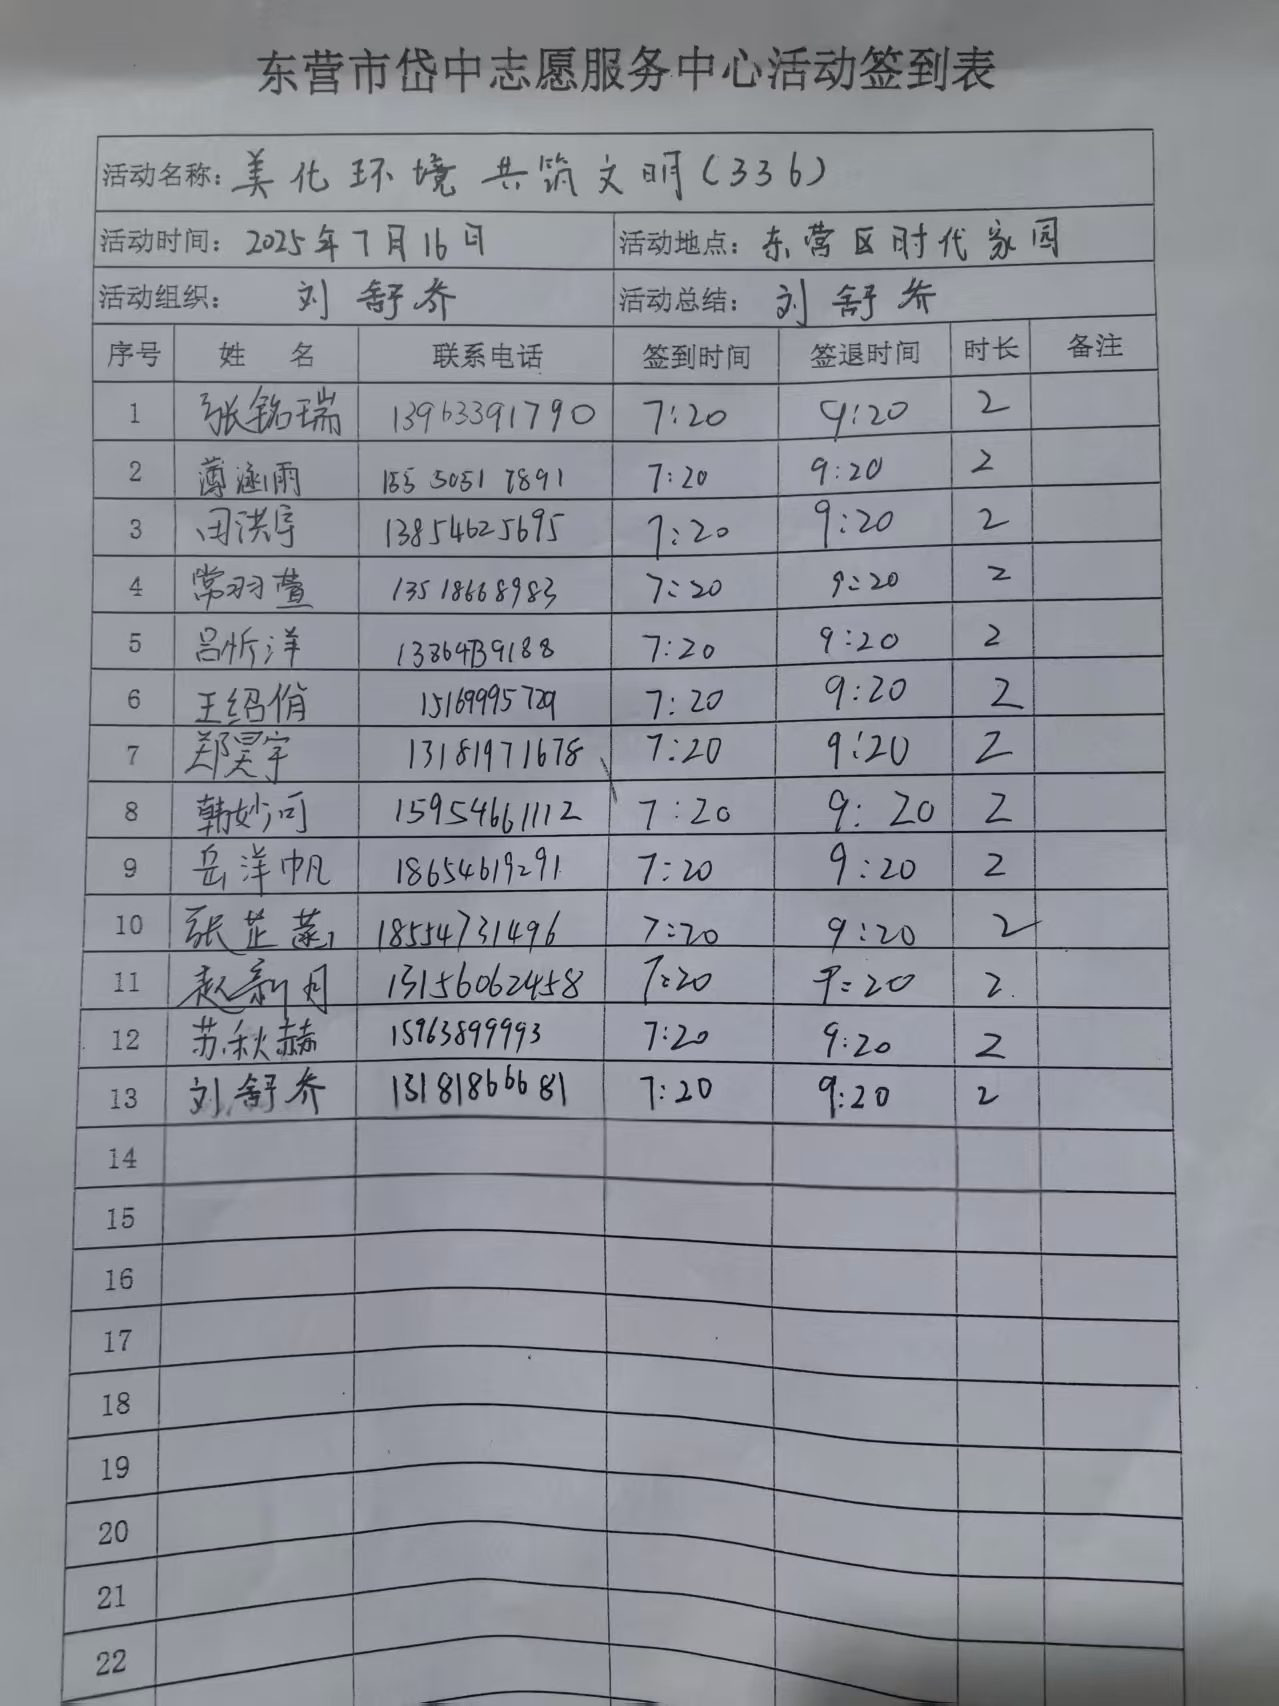 东营市岱中志愿服务中心活动签到表
活动名称：美化环境 共筑文明（336）
活动时间：2025年7月16日 活动地点：东营区时代家园
活动组织：刘舒乔 活动总结：刘舒乔
序号 姓 名 联系电话 签到时间 签退时间 时长 备注
1 张铭瑞 13963391790 7:20 9:20 2
2 薄涵雨 155 5051 7891 7:20 9:20 2
3 田洪宇 13854625695 7:20 9:20 2
4 常羽萱 13518668983 7:20 9:20 2
5 吕忻洋 13864739188 7:20 9:20 2
6 王绍俏 15169995729 7:20 9:20 2
7 郑昊宇 13181971678 7:20 9:20 2
8 韩妙可 15954661112 7:20 9:20 2
9 岳洋帆 18654619291 7:20 9:20 2
10 张芷 18554731496 7:20 9:20 2
11 赵新月 13156062458 7:20 9:20 2
12 苏秋赫 15963899993 7:20 9:20 2
13 刘舒乔 13181866681 7:20 9:20 2
14
15
16
17
18
19
20
21
22